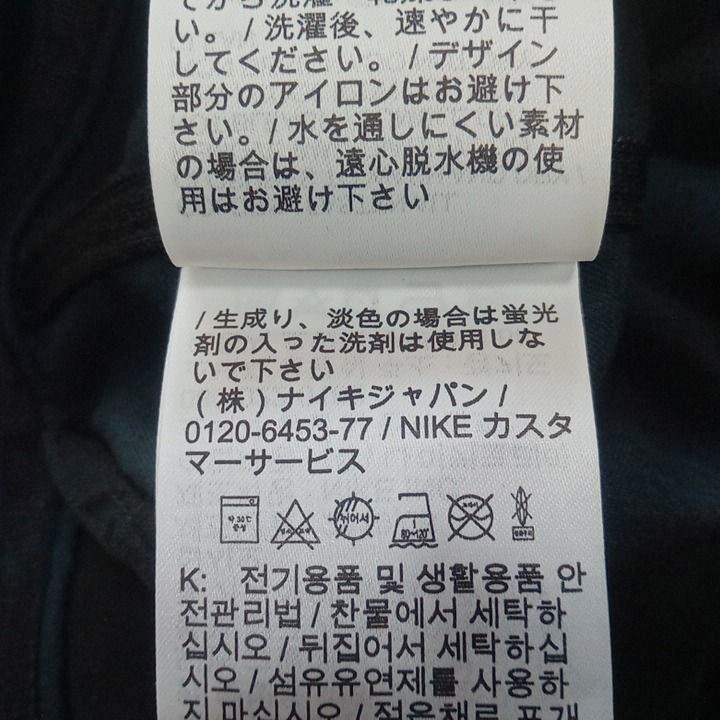 い。 / 洗濯後、速やかに干
してください。 / デザイン
部分のアイロンはお避け下
さい。/ 水を通しにくい素材
の場合は、遠心脱水機の使
用はお避け下さい
/ 生成り、淡色の場合は蛍光
剤の入った洗剤は使用しな
いで下さい
( 株 ) ナイキジャパン /
0120-6453-77 / NIKE カスタ
マーサービス
약 30℃
중성
뉘어서
80~120℃
K: 전기용품 및 생활용품 안
전관리법 / 찬물에서 세탁하
십시오 / 뒤집어서 세탁하십
시오 / 섬유유연제를 사용하
지 마십시오 / 젖은채로 포개